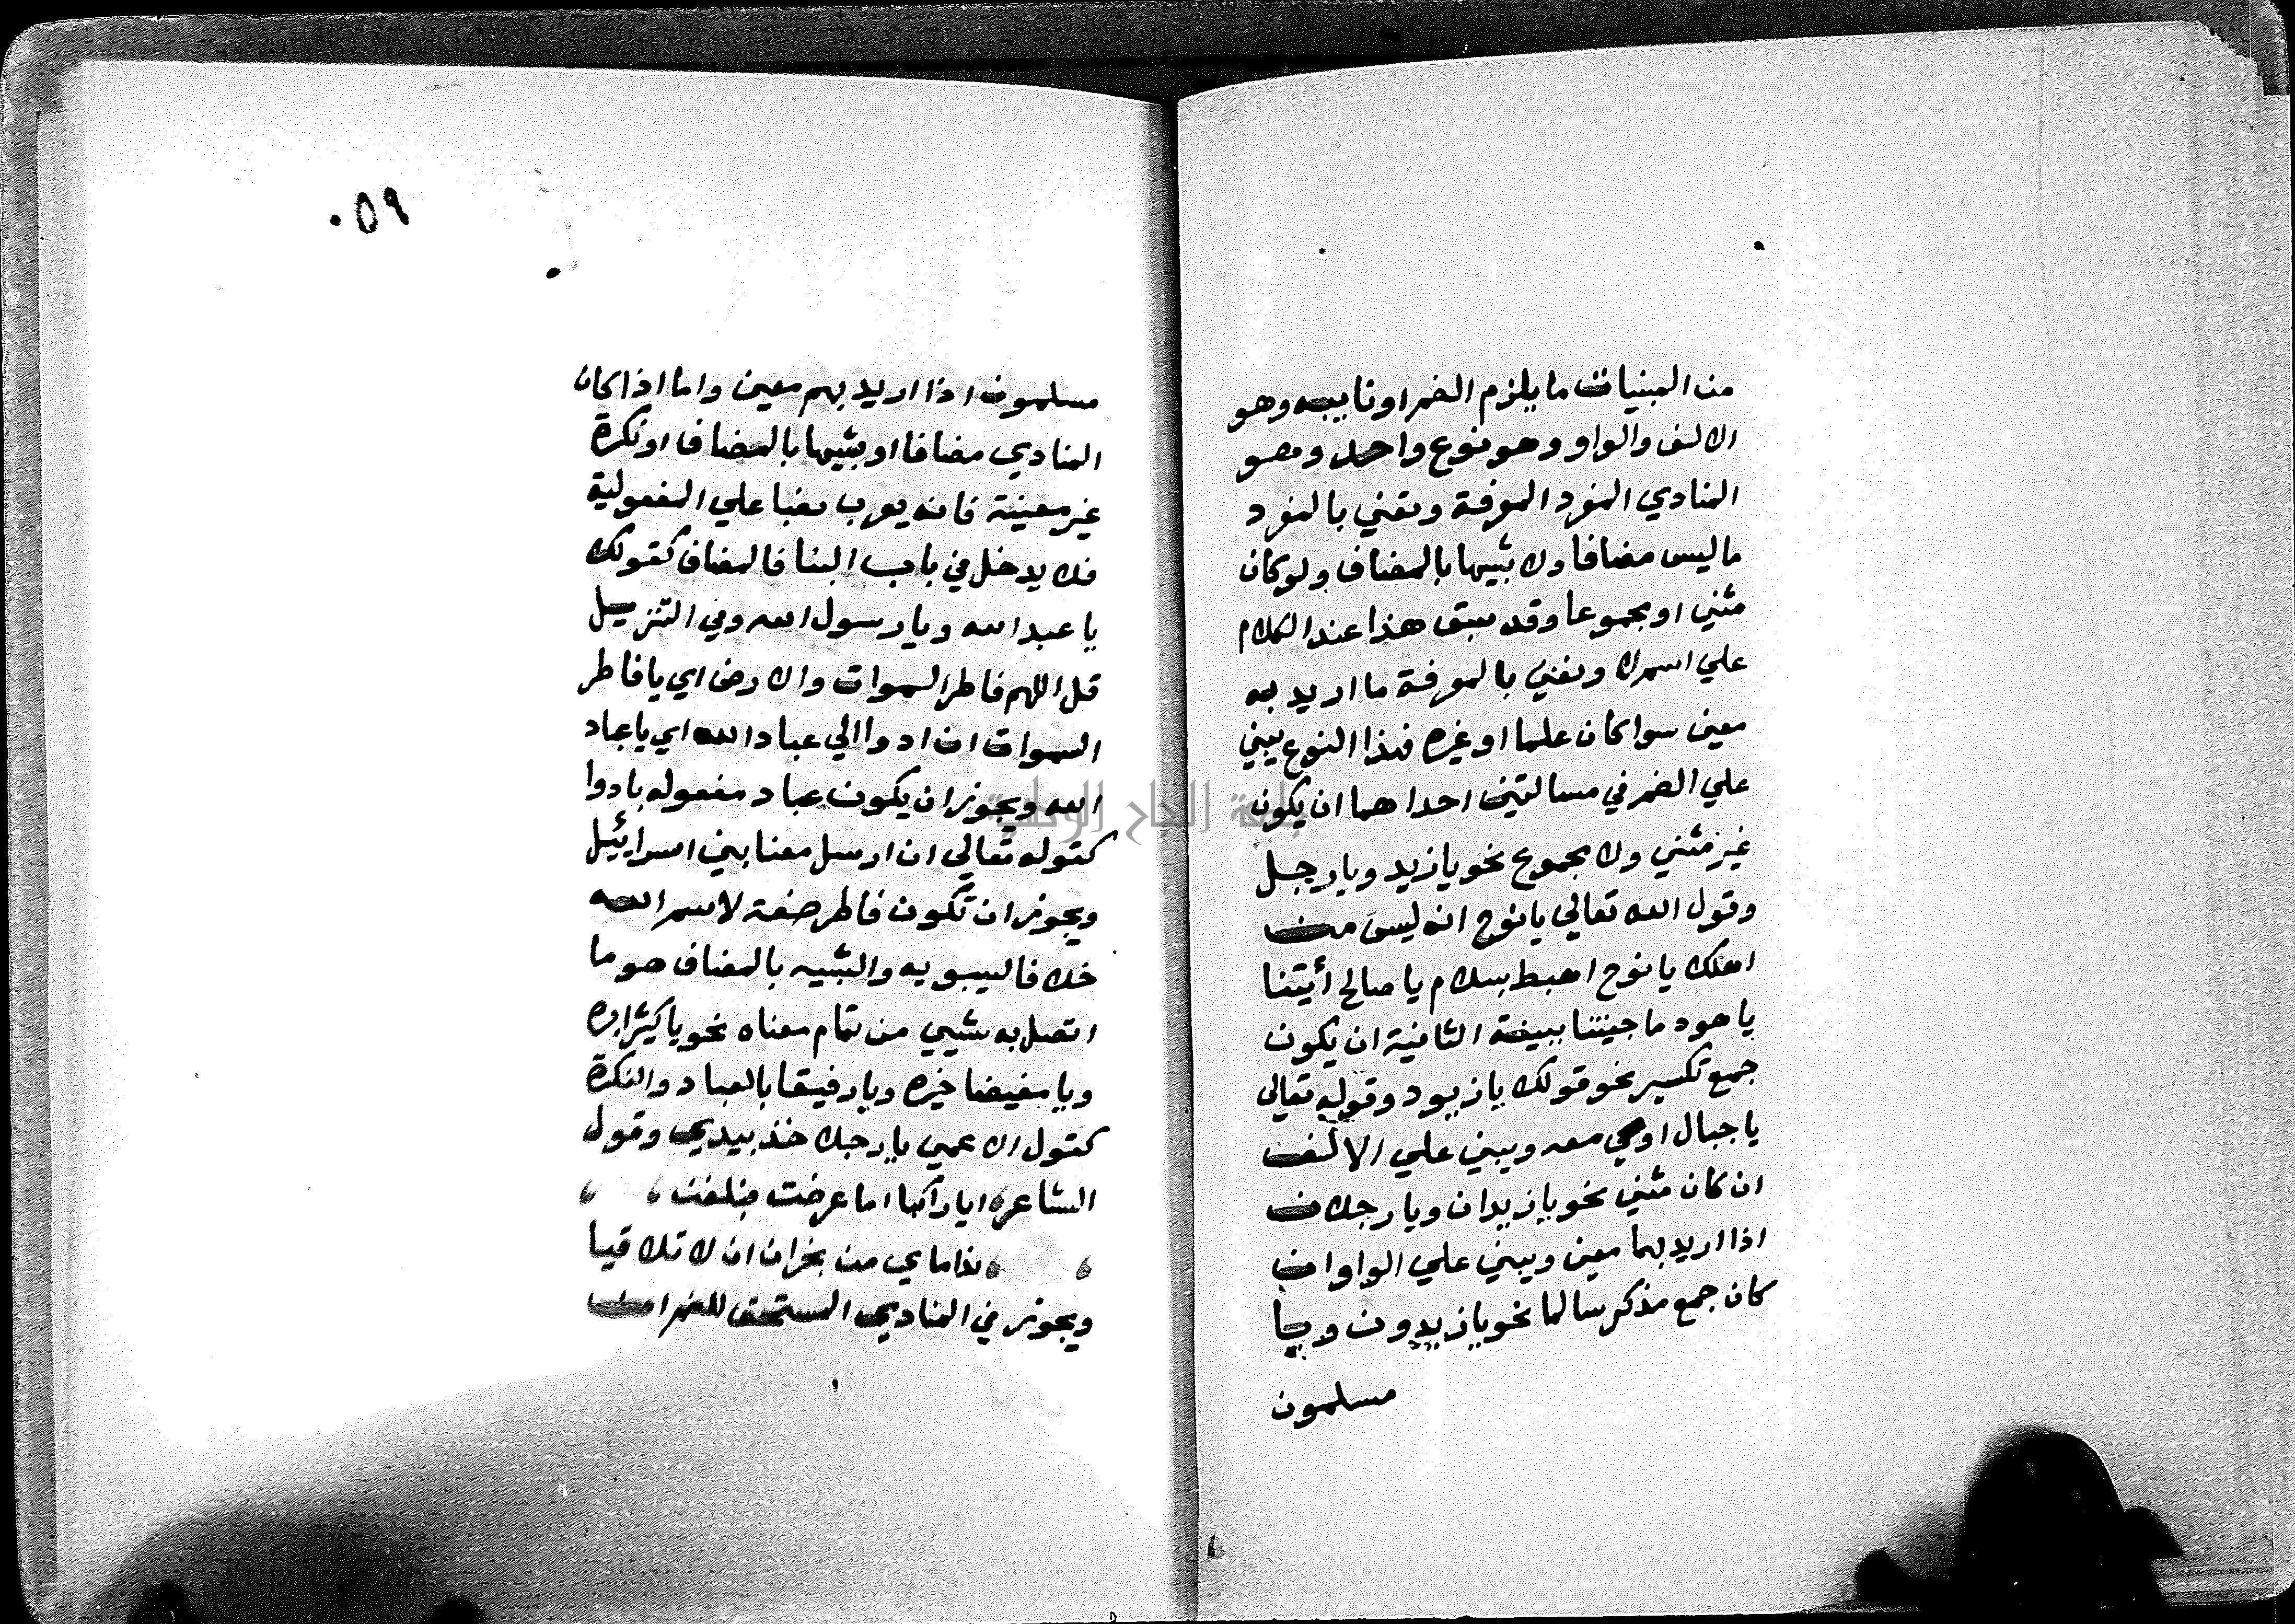 من المبنيات ما يلزم الضم او نايبه وهو
الالف والواو وهو نوع واحد وهو
المنادي المفرد المعرفة ونعني بالمفرد
ما ليس مضافا ولا شبيها بالمضاف ولو كان
مثني او مجموعا وقد سبق هذا عند الكلام
علي اسم لا ونعني بالمعرفة ما اريد به
معين سوا كان علما او غيره فهذا النوع يبني
علي الضم في مسالتين احداهما ان يكون
غير مثني ولا مجموع نحو يا زيد ويا رجل
وقول الله تعالي يا نوح انه ليس من
اهلك يا نوح اهبط بسلام يا صالح أيتنا
يا هود ما جيتنا ببينة الثانية ان يكون
جمع تكسير نحو قولك يا زيود وقوله تعالى
يا جبال اوبي معه ويبني علي الالف
ان كان مثني نحو يا زيدان ويا رجلان
اذا اريد بهما معين ويبني علي الواو ان
كان جمع مذكر سالما نحو يا زيدون ويا
مسلمون
٠٥٩
مسلمون اذا اريد بهم معين واما اذا كان
المنادي مضافا او شبيها بالمضاف او نكرة
غير معينة فانه يعرب نصبا علي المفعولية
فلا يدخل في باب البنا فالمضاف كقولك
يا عبد الله ويا رسول الله وفي التنزيل
قل اللهم فاطر السموات والارض اي يا فاطر
السموات ان ادوا الي عباد الله اي يا عباد
الله ويجوز ان يكون عباد مفعوله بادوا
كقوله تعالي ان ارسل معنا بني اسرائيل
ويجوز ان تكون فاطر صفة لاسم الله
خلافا لسيبويه والشبيه بالمضاف هو ما
اتصل به شيي من تمام معناه نحو يا كثيرا بره
ويا مفيضا خيره ويا رفيقا بالعباد والنكرة
كقول الاعمي يا رجلا خذ بيدي وقول
الشاعر ايا راكبا اما عرضت فبلغن
نداماي من نجران ان لا تلاقيا
ويجوز في المنادي المستحق للضم ان